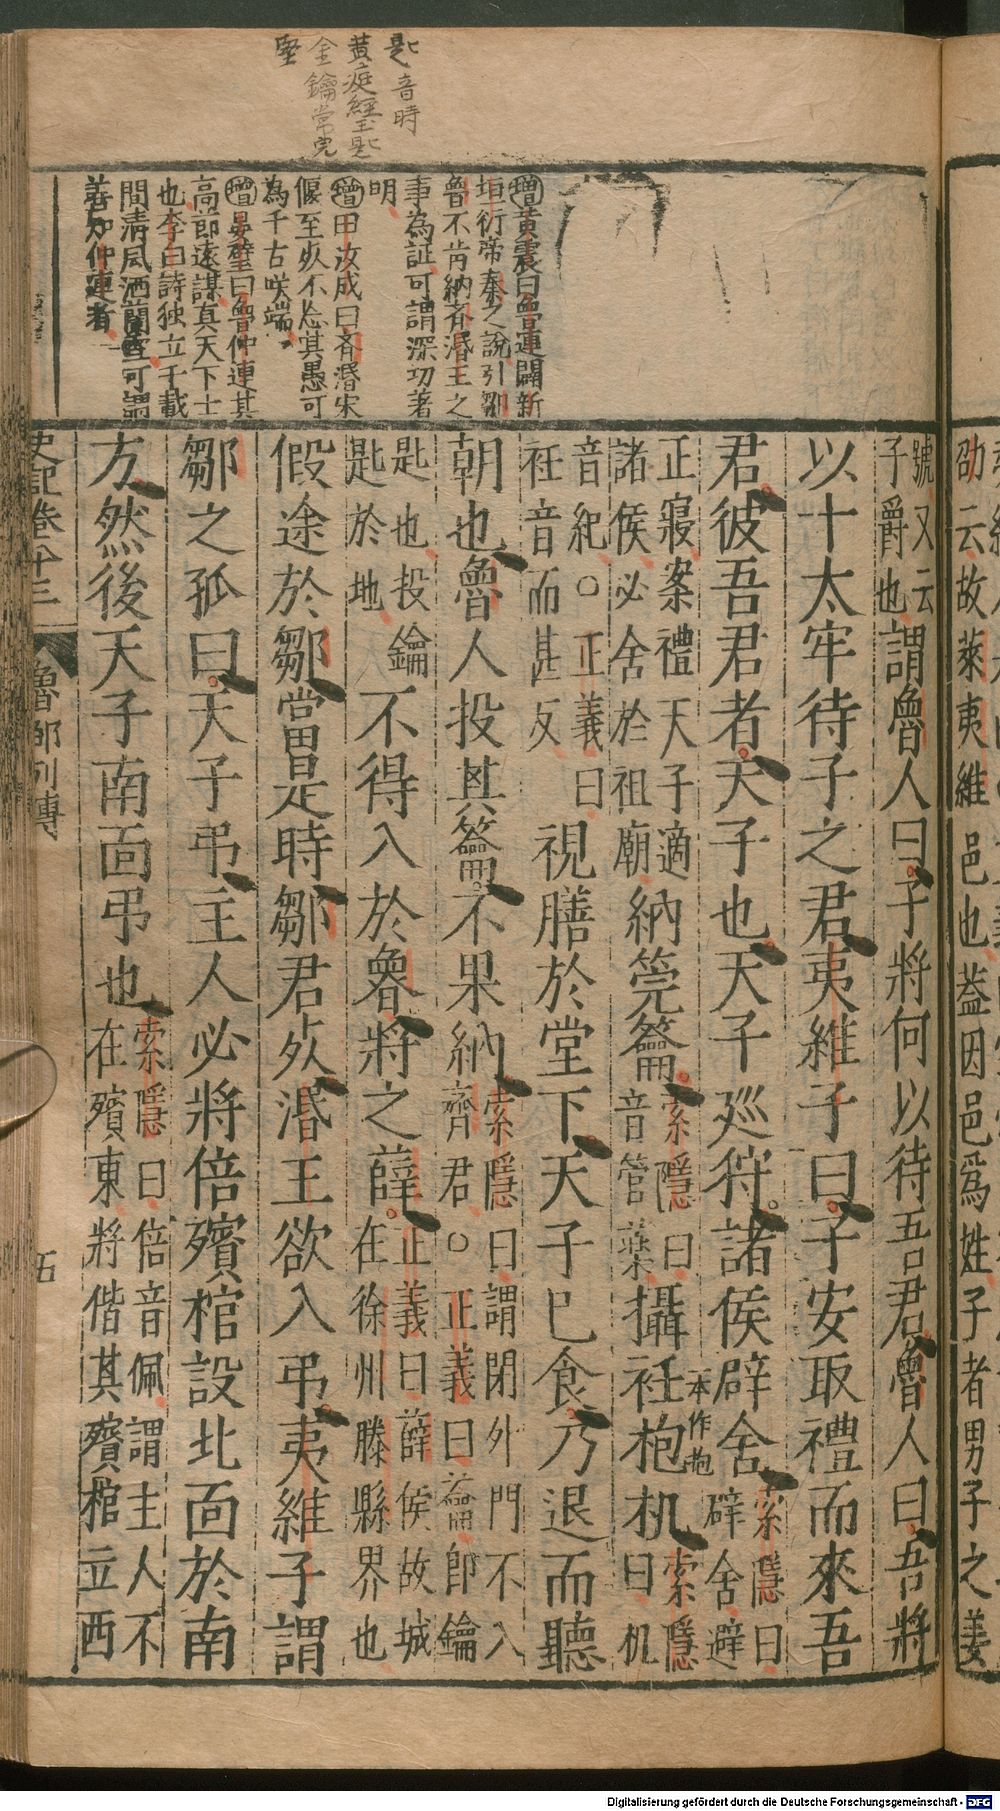 匙 音時
黃庭經玉匙
金鑰常完
堅
增黃震曰魯連闢新
垣衍帝秦之說引鄒
魯不肯納齐湣王之
事為証可謂深切著
明
增田汝成曰斉湣宋
偃至死不忘其愚可
為千古咲端
增晏璧曰魯仲連其
高節遠謀真天下士
也李白詩独立千載
間清風洒蘭雪可謂
善知仲連者
號又云
子爵也
謂魯人曰子將何以待吾君魯人曰吾將
以十太牢待子之君夷維子曰子安取禮而來吾
君彼吾君者天子也天子廵狩諸侯辟舍
索隱曰
辟舍避
正寢案禮天子適
諸侯必舍於祖廟
納筦籥
索隱曰
音管藥
攝衽枹机
本作抱
索隱
曰机
音紀○正義曰
衽音而甚反
視膳於堂下天子已食乃退而聽
朝也魯人投其籥不果納
索隱曰謂閉外門不入
齊君○正義曰籥即鑰
匙也投鑰
匙於地
不得入於魯將之薛
正義曰薛侯故城
在徐州滕縣界也
假途於鄒當是時鄒君死湣王欲入弔夷維子謂
鄒之孤曰天子弔主人必將倍殯棺設北面於南
方然後天子南面弔也
索隱曰倍音佩謂主人不
在殯東將偕其殯棺立西
史記卷八十三
魯鄒列傳
五
邵云故萊夷維
邑也蓋因邑爲姓子者男子之美
Digitalisierung gefördert durch die Deutsche Forschungsgemeinschaft - DFG